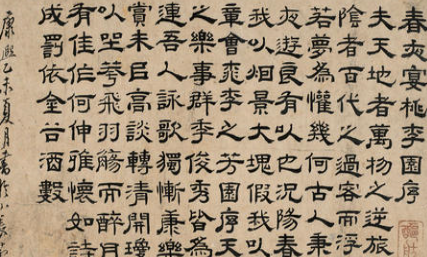 春夜宴桃李園序
夫天地者萬物之逆旅
陰者百代之過客而浮
若夢為懽幾何古人秉
夜遊良有以也況陽春
我以烟景大塊假我以
章會桃李之芳園序天
之樂事群季俊秀皆為
連吾人詠歌獨慚康樂
賞未已高談轉清開瓊
以坐華飛羽觴而醉月
有佳作何伸雅懷如詩
成罰依金谷酒數
康熙乙未夏月書於小